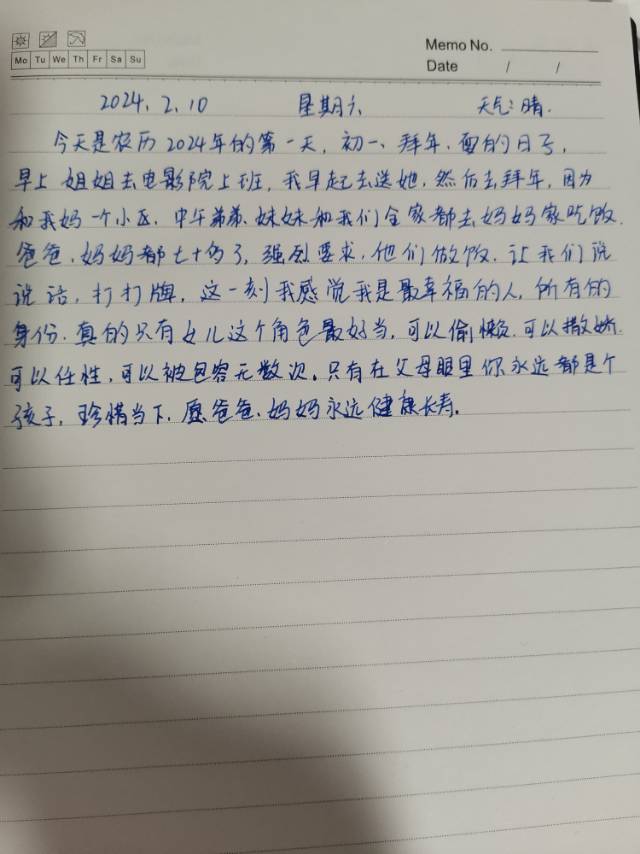 Memo No.
Mo Tu We Th Fr Sa Su
Date / /
2024.2.10 星期六 天气:晴.
今天是农历2024年的第一天,初一、拜年、面的日子,
早上姐姐去电影院上班,我早起去送她,然后去拜年,因为
和我妈一个小区,中午弟弟、妹妹和我们全家都去妈妈家吃饭.
爸爸、妈妈都七十多了,强烈要求,他们做饭,让我们说
说话,打打牌,这一刻我感觉我是最幸福的人,所有的
身份,真的只有女儿这个角色最好当,可以偷懒,可以撒娇,
可以任性,可以被包容无数次。只有在父母眼里你永远都是个
孩子,珍惜当下,愿爸爸、妈妈永远健康长寿。